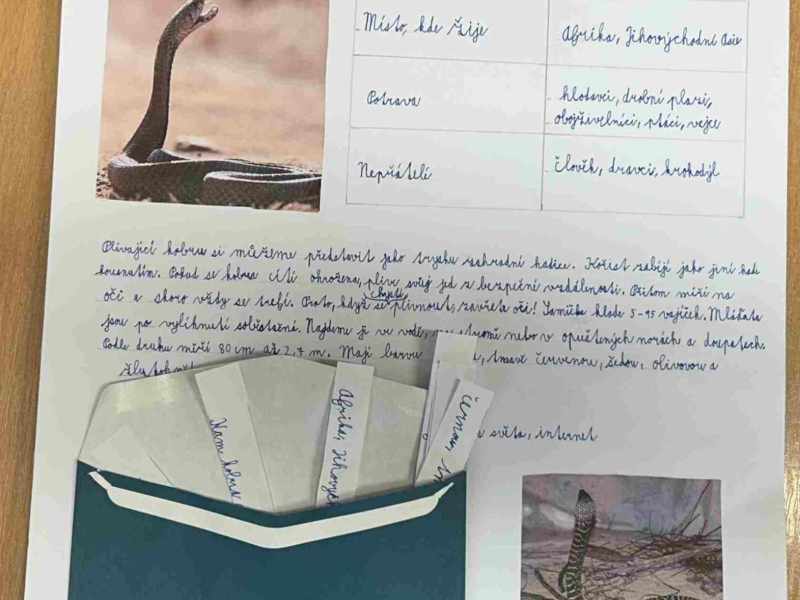 Místo, kde žije
Afrika, Jihovýchodní Asie
Potrava
hlodavci, drobní plazi,
obojživelníci, ptáci, vejce
Nepřátelé
člověk, dravci, krokodýl
Plivající kobru si můžeme představit jako trysku zahradní hadice. Kořist zabíjí jako jiní hadi
kousnutím. Pokud se kobra cítí ohrožena, plive svůj jed z bezpečné vzdálenosti. Přitom míří na
oči a skoro vždy se trefí. Proto, když se chystá plivnout, zavřete oči! Samička klade 5-15 vajíček. Mláďata
jsou po vylíhnutí soběstačné. Najdeme ji ve vodě, stromě nebo v opuštěných norách a doupatech.
Podle druhu měří 80 cm až 2,7 m. Mají barvu tmavě červenou, šedou, olivovou a
světa, internet
Kam kobra
Afrika, Jihových
černou,